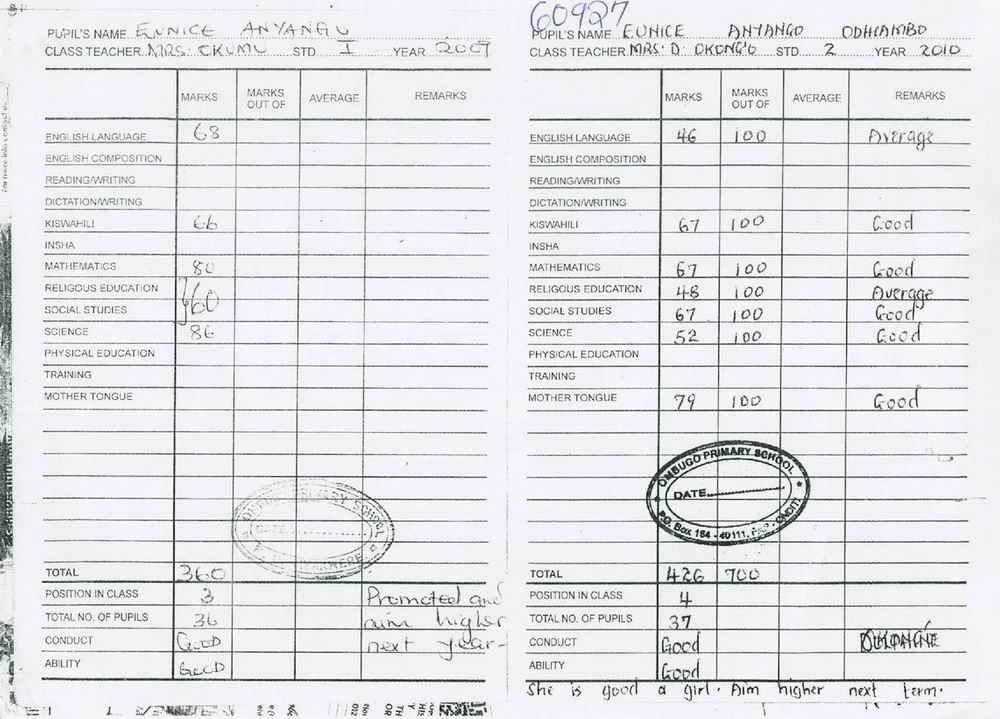 PUPIL'S NAME EUNICE ANYANGU
CLASS TEACHER MRS. OKUMU STD I YEAR 2009
MARKS MARKS OUT OF AVERAGE REMARKS
ENGLISH LANGUAGE 68
ENGLISH COMPOSITION
READING/WRITING
DICTATION/WRITING
KISWAHILI 66
INSHA
MATHEMATICS 80
RELIGOUS EDUCATION
SOCIAL STUDIES 60
SCIENCE 86
PHYSICAL EDUCATION
TRAINING
MOTHER TONGUE
PRIMARY SCHOOL
DATE
TOTAL 360
POSITION IN CLASS 3 Promoted and
TOTAL NO. OF PUPILS 36 aim higher
CONDUCT GOOD next year-
ABILITY GOOD
60927
PUPIL'S NAME EUNICE ANYANGO ODHIAMBO
CLASS TEACHER MRS. D. OKONG'O STD 2 YEAR 2010
MARKS MARKS OUT OF AVERAGE REMARKS
ENGLISH LANGUAGE 46 100 Average
ENGLISH COMPOSITION
READING/WRITING
DICTATION/WRITING
KISWAHILI 67 100 Good
INSHA
MATHEMATICS 67 100 Good
RELIGOUS EDUCATION 48 100 Average
SOCIAL STUDIES 67 100 Good
SCIENCE 52 100 Good
PHYSICAL EDUCATION
TRAINING
MOTHER TONGUE 79 100 Good
OMBUGO PRIMARY SCHOOL
DATE
P.O. Box 164 - 40111, PAP - ONDITI
TOTAL 426 700
POSITION IN CLASS 4
TOTAL NO. OF PUPILS 37
CONDUCT Good
ABILITY Good
She is good a girl. Aim higher next term.